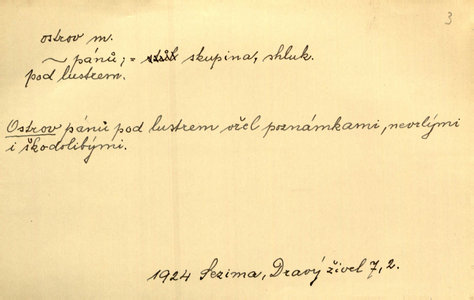 3
ostrov m.
~ pánů; = skupina, shluk.
pod lustrem.
Ostrov pánů pod lustrem vřel poznámkami, nevrlými
i škodolibými.
1924 Sezima, Dravý živel 7, 2.